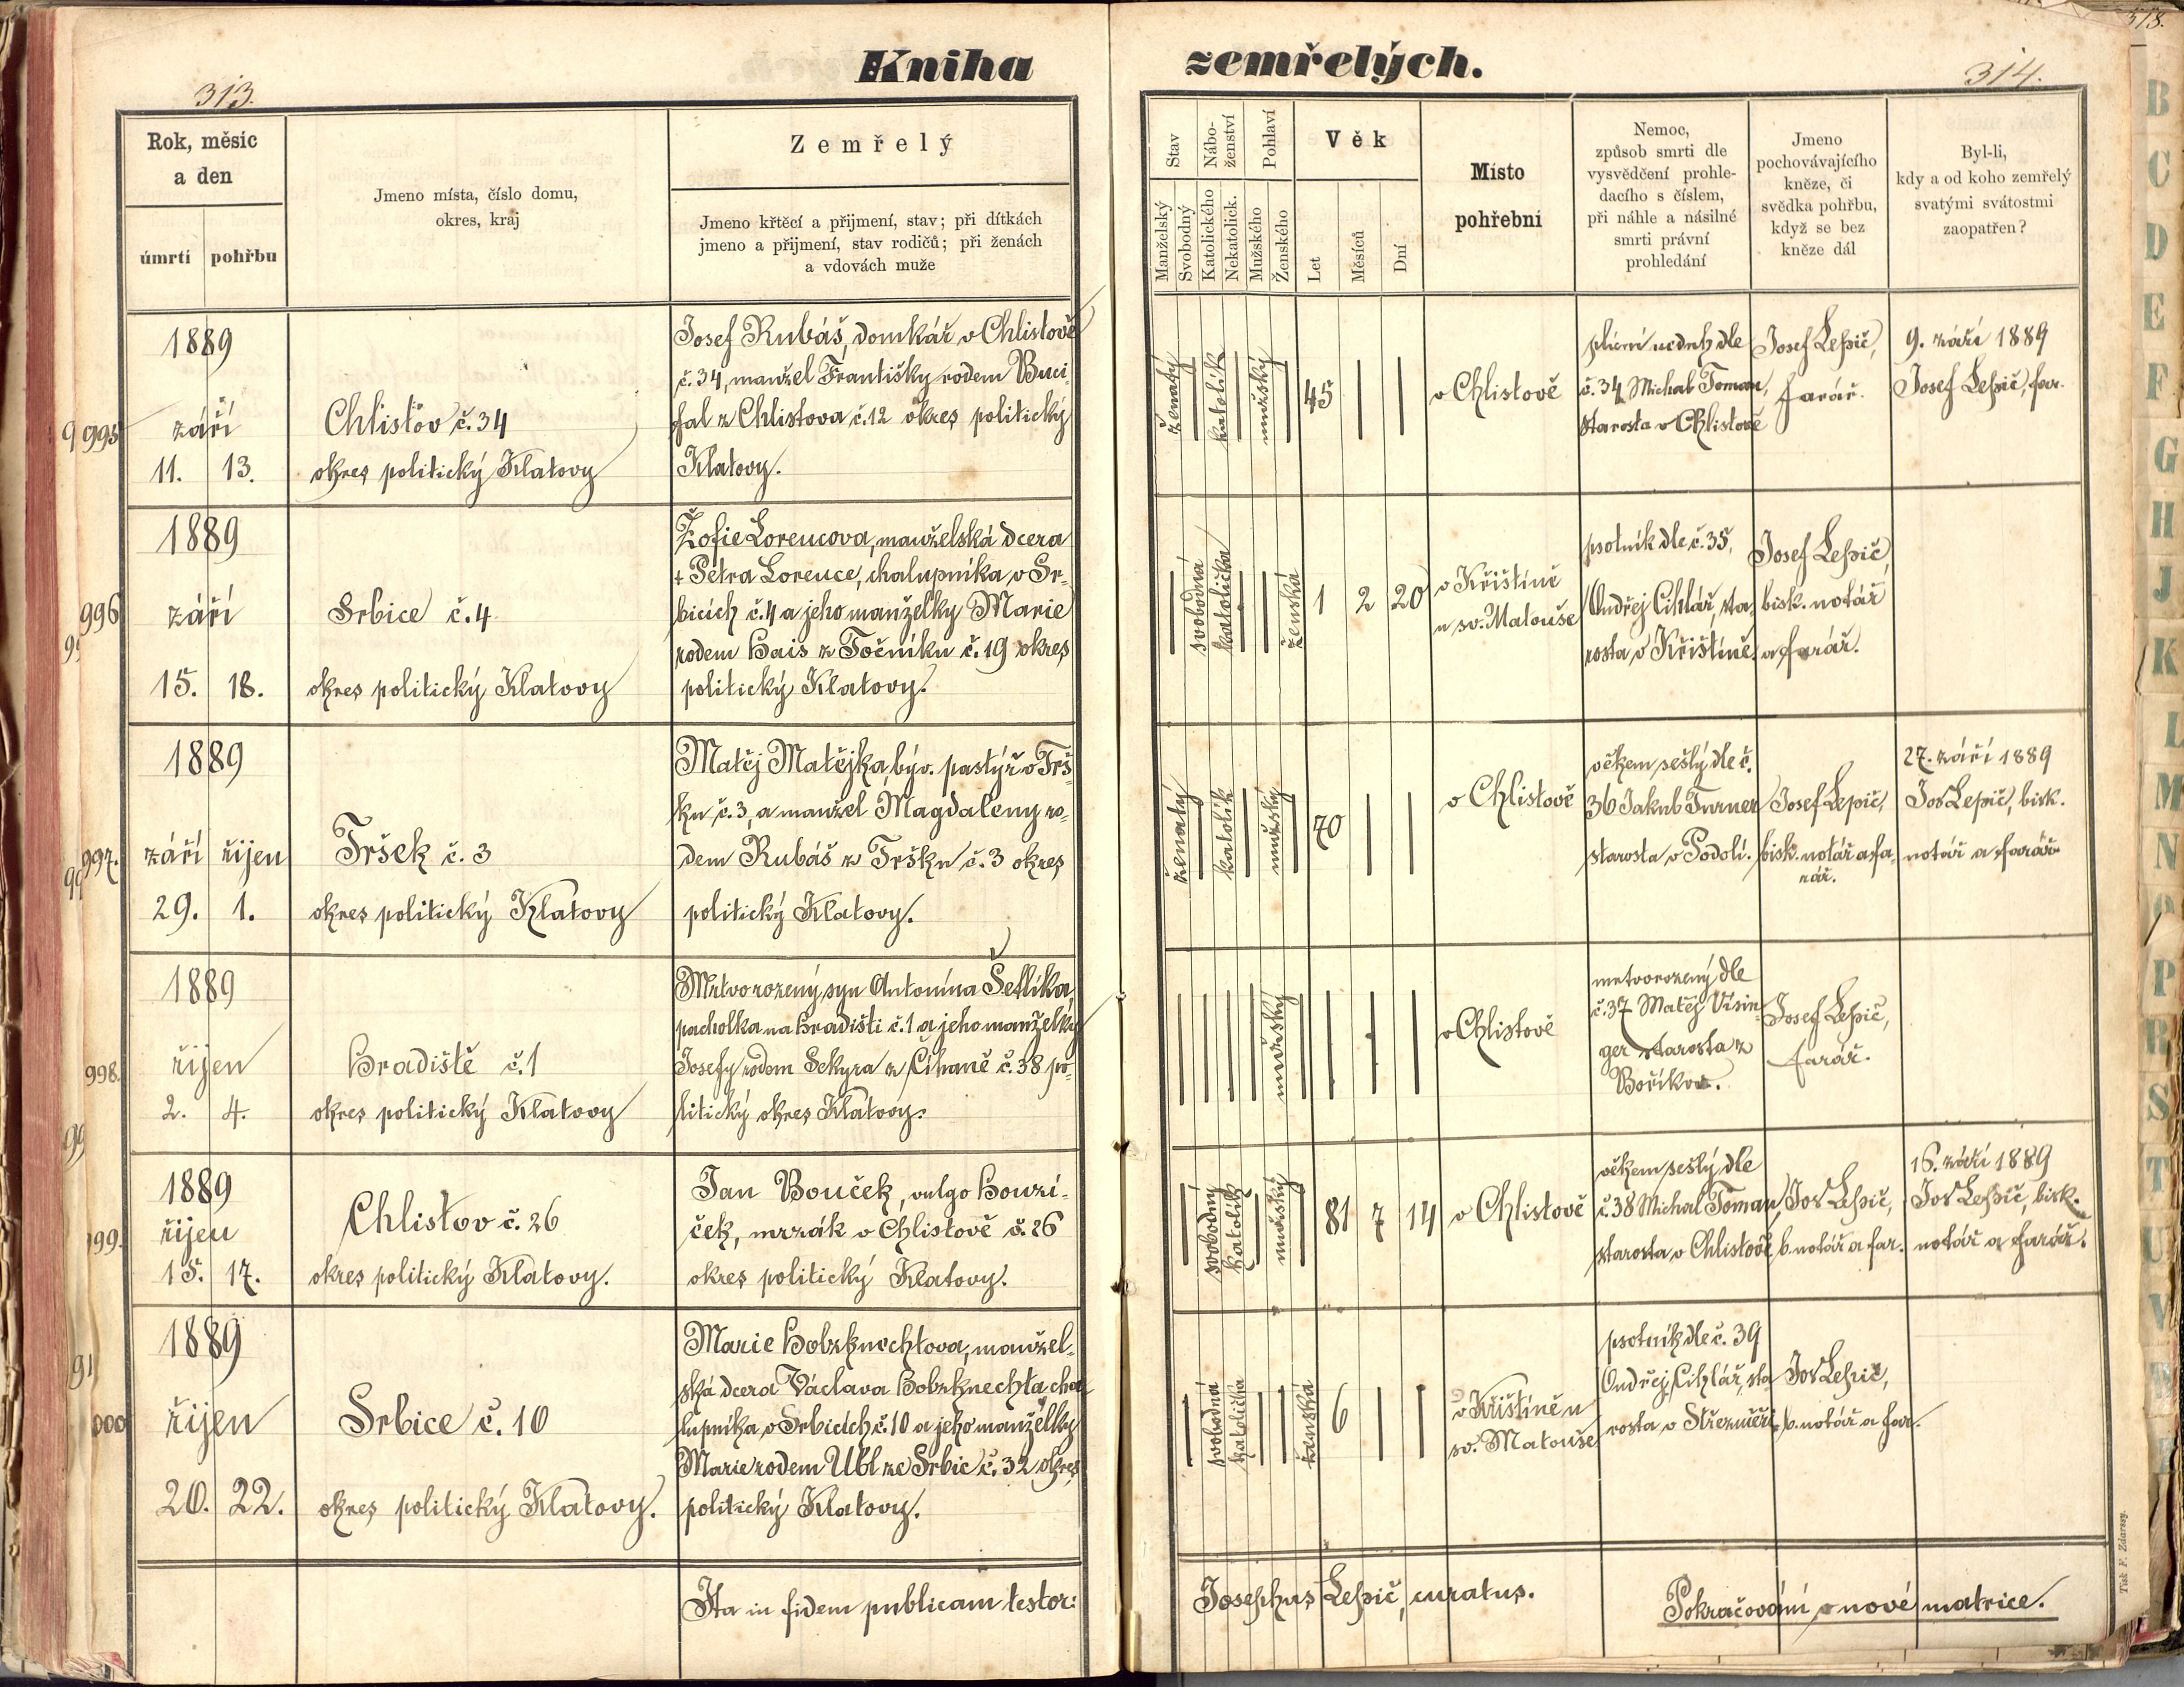 Kniha
zemřelých.
313.
314.
Rok, měsíc
a den
úmrtí
pohřbu
Jmeno místa, číslo domu,
okres, kraj
Zemřelý
Jmeno křtěcí a přijmení, stav; při dítkách
jmeno a přijmení, stav rodičů; při ženách
a vdovách muže
Stav
Nábo-
ženství
Pohlaví
Manželský
Svobodný
Katolického
Nekatolick.
Mužského
Ženského
Věk
Let
Měsíců
Dní
Místo
pohřební
Nemoc,
způsob smrti dle
vysvědčení prohle-
dacího s číslem,
při náhle a násilné
smrti právní
prohledání
Jmeno
pochovávajícího
kněze, či
svědka pohřbu,
když se bez
kněze dál
Byl-li,
kdy a od koho zemřelý
svatými svátostmi
zaopatřen?
995
1889
září
11. 13.
Chlistov č. 34
okres politický Klatovy
Josef Rubáš, domkář v Chlistově
č. 34, manžel Františky rodem Buci-
fal z Chlistova č. 12 okres politický
Klatovy.
ženatý
katolík
mužský
45
v Chlistově
dle
č. 34 Michal Toman,
starosta v Chlistově
Josef Lepič,
farář.
9. září 1889
Josef Lepič, far.
996
1889
září
15. 18.
Srbice č. 4
okres politický Klatovy
Žofie Lorencova, manželská dcera
+ Petra Lorence, chalupníka v Sr-
bicích č. 4 a jeho manželky Marie
rodem Hais z Točníku č. 19 okres
politický Klatovy.
svobodná
katolička
ženská
1 2 20
v Křištíně
u sv. Matouše
psotník dle č. 35,
Ondřej Cihlář, sta-
rosta v Křištíně.
Josef Lepič,
bisk. notář
a farář.
997.
1889
září říjen
29. 1.
Tršek č. 3
okres politický Klatovy
Matěj Matějka, býv. pastýř v Trš-
ku č. 3, a manžel Magdaleny ro-
dem Rubáš z Tršku č. 3 okres
politický Klatovy.
ženatý
katolík
mužský
70
v Chlistově
věkem sešlý dle č.
36 Jakub Turner
starosta v Podolí.
Josef Lepič,
bisk. notář a fa-
rář.
27. září 1889
Jos Lepič, bisk.
notář a farář
998.
1889
říjen
2. 4.
Hradiště č. 1
okres politický Klatovy
Mrtvorozený syn Antonína Šetlíka,
pacholka na Hradišti č. 1 a jeho manželky
Josefy rodem Sekyra z Číhaně č. 38 po-
litický okres Klatovy.
mužský
v Chlistově
mrtvorozený dle
č. 37 Matěj Visin-
ger starosta z
Boříkov.
Josef Lepič,
farář.
999.
1889
říjen
15. 17.
Chlistov č. 26
okres politický Klatovy.
Jan Bouček, vulgo Houzi-
ček, mrzák v Chlistově č. 26
okres politický Klatovy.
svobodný
katolík
mužský
81 7 14
v Chlistově
věkem sešlý dle
č. 38 Michal Toman,
starosta v Chlistově
Jos Lepič,
b. notář a far.
16. září 1889
Jos Lepič, bisk.
notář a farář.
000
1889
říjen
20. 22.
Srbice č. 10
okres politický Klatovy.
Marie Holzknechtova, manžel-
ská dcera Václava Holzknechta cha-
lupníka v Srbicích č. 10 a jeho manželky
Marie rodem Übl ze Srbic č. 32 okres
politický Klatovy.
svobodná
katolička
ženská
6
v Křištíně u
sv. Matouše
psotník dle č. 39
Ondřej Cihlář, sta-
rosta v Střeziměři.
Jos Lepič,
b. notář a far.
Ita in fidem publicam testor:
Josephus Lepič, curatus.
Pokračování v nové matrice.
Tisk F. Zdarssy.
B
C
D
E
F
G
H
J
K
L
M
N
O
P
R
S
T
U
V